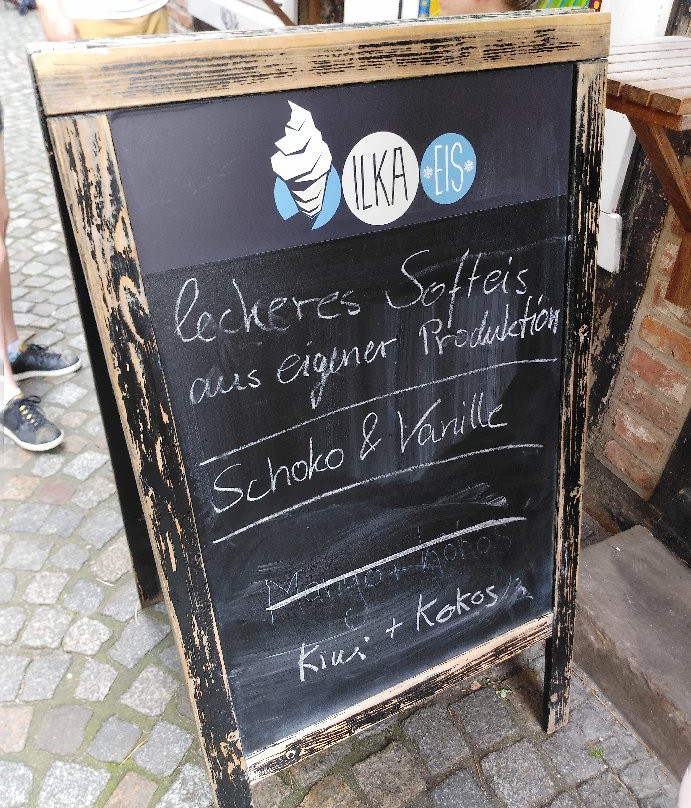 ILKA EIS
leckeres Softeis
aus eigener Produktion
Schoko & Vanille
Mango + Kokos
Kiwi + Kokos